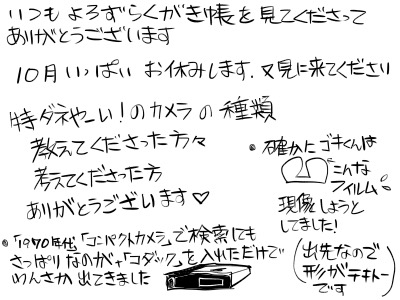 いつもよろずらくがき帳を見てくださって
ありがとうございます
10月いっぱいお休みします。又見に来てください
特ダネやーい!のカメラの種類
教えてくださった方々
考えてくださった方
ありがとうございます♡
●確かにゴキくんは
こんな
フィルム
現像しようと
してました!
(出先なので
形がテキトー
です)
●「1970年代」「コンパクトカメラ」で検索しても
さっぱりなのが+「コダック」を入れただけで
わんさか出てきました